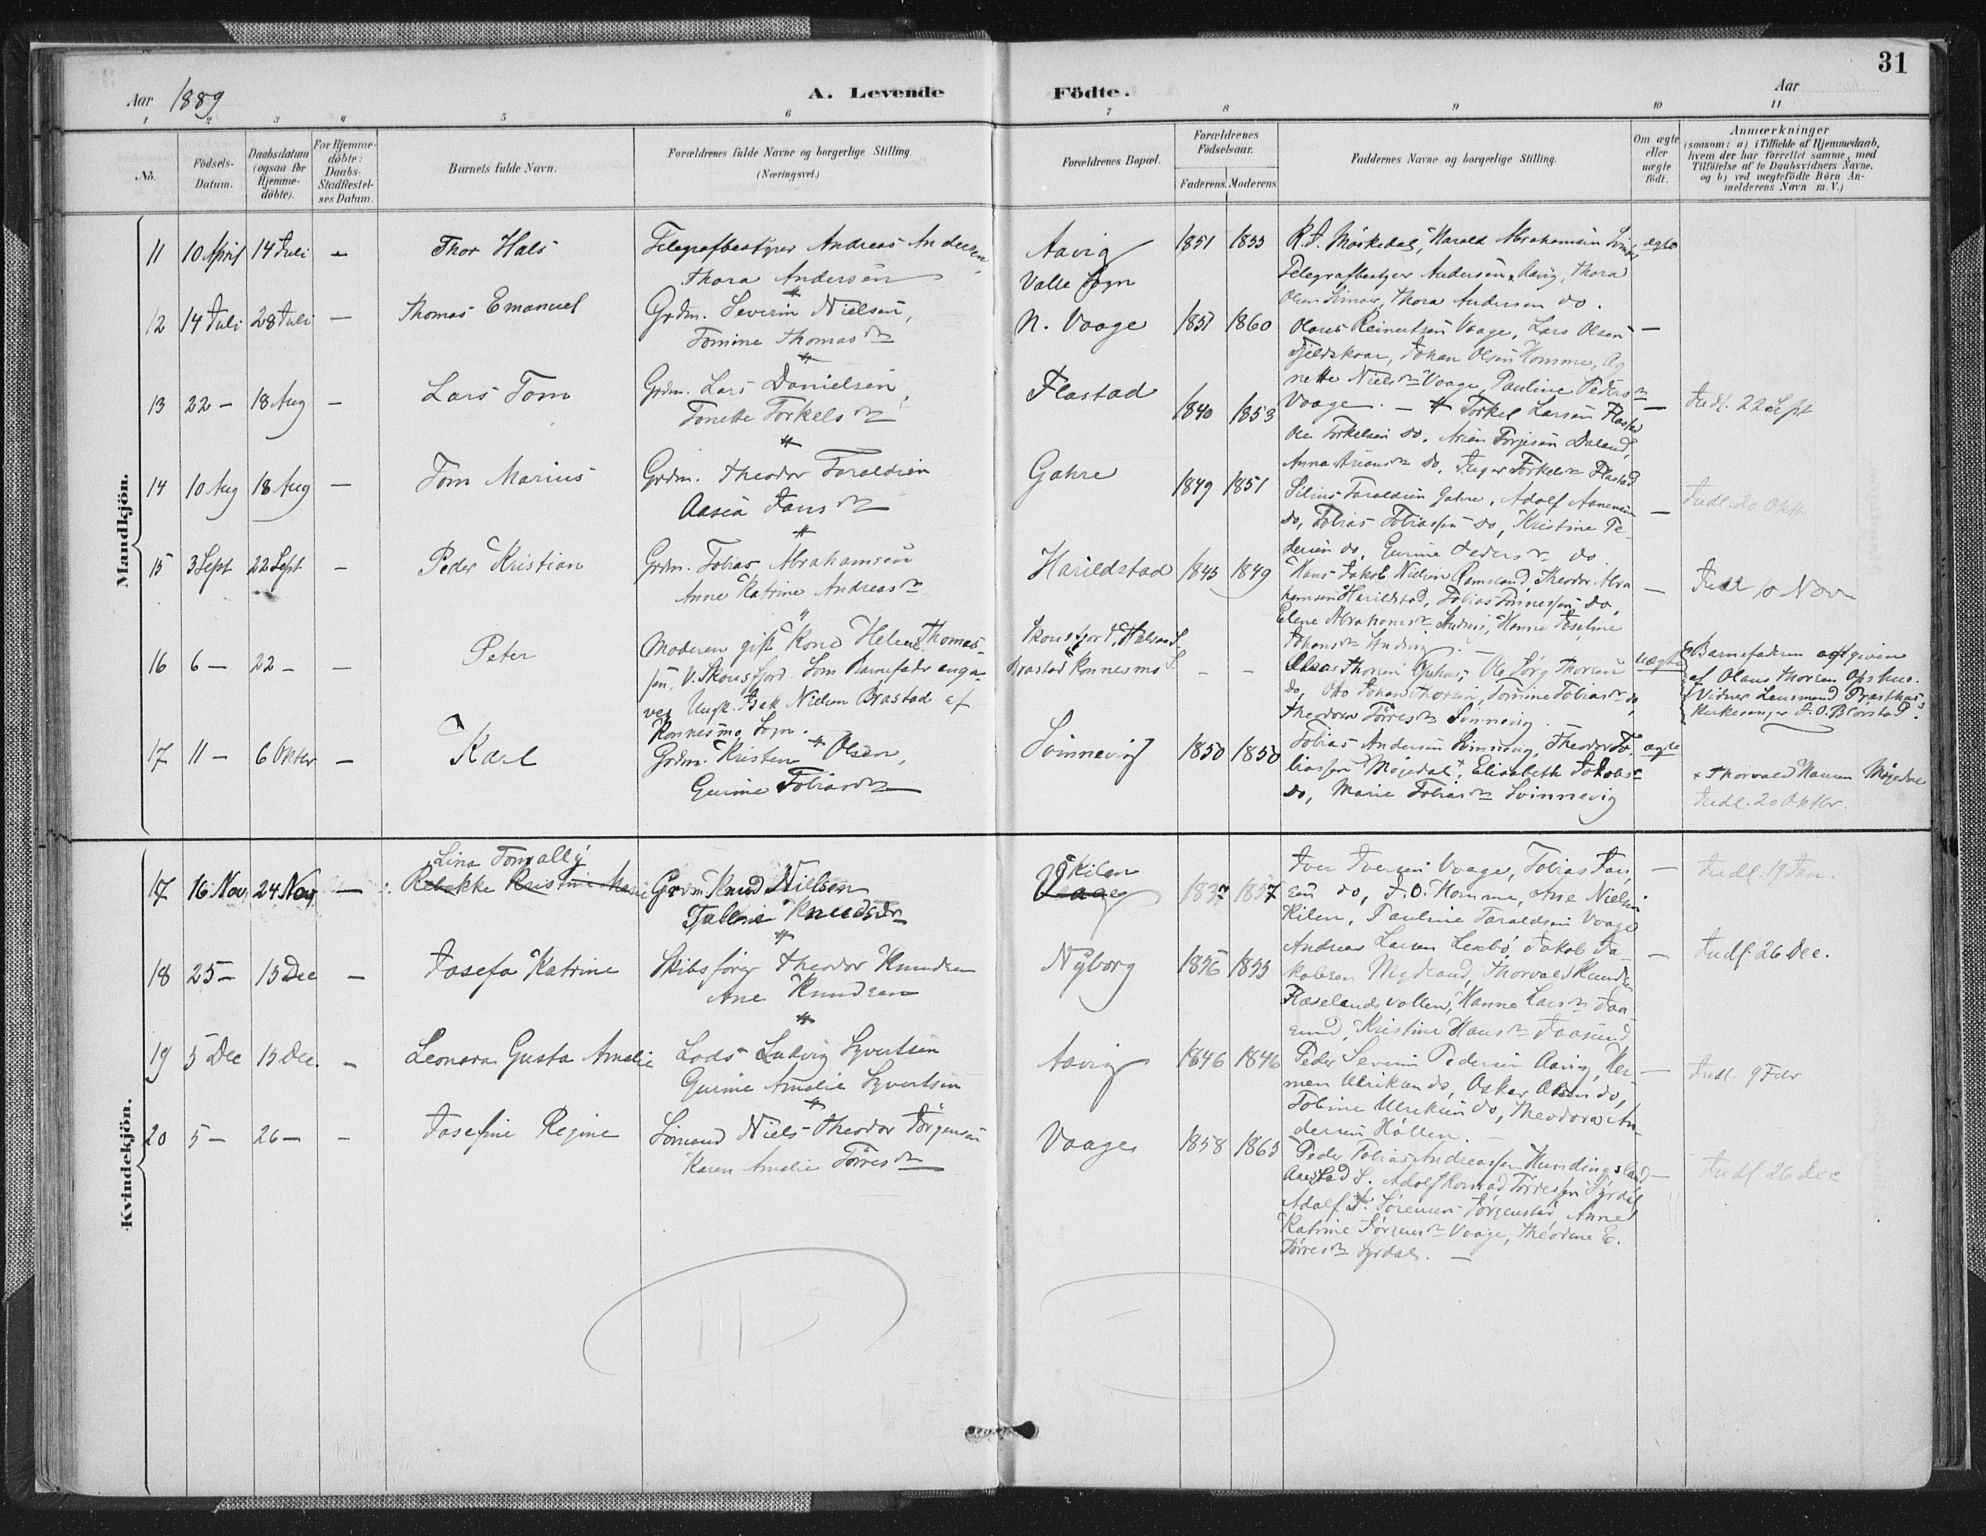 31
Aar 1889
A. Levende Födte.
Aar
1 2 3 4 5 6 7 8 9 10 11
No.
Födsels-Datum.
Daabsdatum (ogsaa for Hjemme-döbte).
For Hjemme-döbte: Daabs-Stadfæstel-ses Datum.
Barnets fulde Navn.
Forældrenes fulde Navne og borgerlige Stilling.
(Næringsvei.)
Forældrenes Bopæl.
Forældrenes Födselsaar.
Faderens. Moderens.
Faddernes Navne og borgerlige Stilling.
Om ægte eller uægte födt.
Anmærkninger
(saasom: a) i Tilfælde af Hjemmedaab,
hvem der har forrettet samme, med
Tilföielse af to Daabsvidners Navne,
og b) ved uægtefödte Börn An-
melderens Navn m. V.)
Mandkjön.
11 10 April 14 Juli - Thor Hals
Telegrafbestyrer Andreas Andersen,
Thora Andersen
Aavig
Valle Sogn
1851 1855
Harald Abrahamsen
ægte
Telegrafbestyrer Andersen, Aavig, Thora
Thora Andersen do.
12 14 Juli 28 Juli - Thomas Emanuel
Grdm. Severin Nielsen,
Tomine Thomasdtr
N. Vaage
1851 1860
Olaus Reinertsen Vaage, Lars Olsen
Fjeldskaar, Johan Olsen Homme, Ag
nette Nielsdtr Vaage, Pauline Pedersdtr
Vaage. -
13 22 - 18 Aug - Lars Tom
Grdm. Lars Danielsen,
Tonette Torkelsdtr
Flastad
1840 1853
Torkel Larsen Flastad
Ole Torkelsen do, Arien Torjesen Daland,
Anna Ariensdtr do, Inger Torkelsdtr Flastad
Indl. 22 Sept
14 10 Aug 18 Aug - Tom Marius
Grdm. Theodor Taraldsen
Aasea Jansdtr
Gahre
1849 1851
Silius Taraldsen Gahre, Adolf Aanensen
do, Tobias Tobiassen do, Kristine Pe-
dersen do, Gurine Pedersdtr do
Indl. 20 Okt
15 3 Sept 22 Sept - Peder Kristian
Grdm. Tobias Abrahamsen
Anne Katrine Andreasdtr
Harildstad
1843 1849
Hans Jakob Nielsen Ramsland, Theodor Abra
hamsen Harildstad, Tobias Tönnessen do,
Hanne Josefine
Indl 10 Nov
16 6 - 22 - - Peter
Moderen gift Kone Helene Thomas-
sen, V. Skonsfjord. Som Barnefader angi-
ves Ungk. Isak Nielsen Brastad af
Konnesmo Sogn.
Skonsfjord, Halsaa S.
Brastad Konnesmo S.
- -
Olaus Thorsen Opshus, Ole Jörg Thorsen
do, Otto Johan Thorsen, Tomine Tobiasdtr do,
Theodora Törresdtr Svinnevig. -
uægte
Barnefaderen opgiven
af Olaus Thorsen Opshus.
Vidner Lensmand Præsthus,
Kirkesanger J. O. Björstad.
17 11 - 6 Oktbr - Karl
Grdm. Kristen Olsen,
Gurine Tobiasdtr
Svinnevig
1850 1850
Tobias Andersen Svinnevig, Theodor To-
biassen Möjedal +, Elisabeth Jakobsdtr
do, Marie Tobiasdtr Svinnevig
ægte
+ Thorvald Hansen Möjedal
Indl. 20 Oktbr.
Kvindekjön.
17 16 Nov 24 Nov -
Lina Tomally
Rebekke Kristine Marie
Grdm. Knud Nielsen
Talleine Knudsdtr
Kilen
Vaage
1837 1837
Iver Iversen Vaage, Tobias Jan
sen do, J. O. Homme, Ane Nielsen
Kilen, Pauline Taraldsen Vaage
Indl. 19 Jan.
18 25 - 15 Dec - Josefa Katrine
Skibsförer Theodor Knudsen
Ane Knudsen
Nyborg
1856 1855
Andreas Larsen Lenbö, Jakob Ja-
kobsen Thorvald Knudsen
Flæselandsvollen, Hanne Larsdtr Faa
sund, Kristine Hansdtr Faasund
Indl 26 Dec.
19 5 Dec 15 Dec. - Leonora Gusta Amalie
Lods Ludvig Syvertsen
Gurine Amalie Syvertsen
Aavig
1846 1846
Peder Severin Pedersen Aavig, Her-
man Ulriksen do, Oskar Olsen do,
Tobine Ulriksen do, Theodora An-
dersen Höllen. -
Indl. 9 Febr
20 5 - 26 - - Josefine Regine
Sömand Niels Theodor Jörgensen
Karen Amalie Törresdtr
Vaage
1858 1865
Peder Tobias Andreassen Hundingsland
Adolf Konrad Törressen Syrdal
Adolf Sörensen Anne
Katrine Jörgensdtr Vaage, Theodine E.
Törresdtr Syrdal. -
Indl 26 Dec